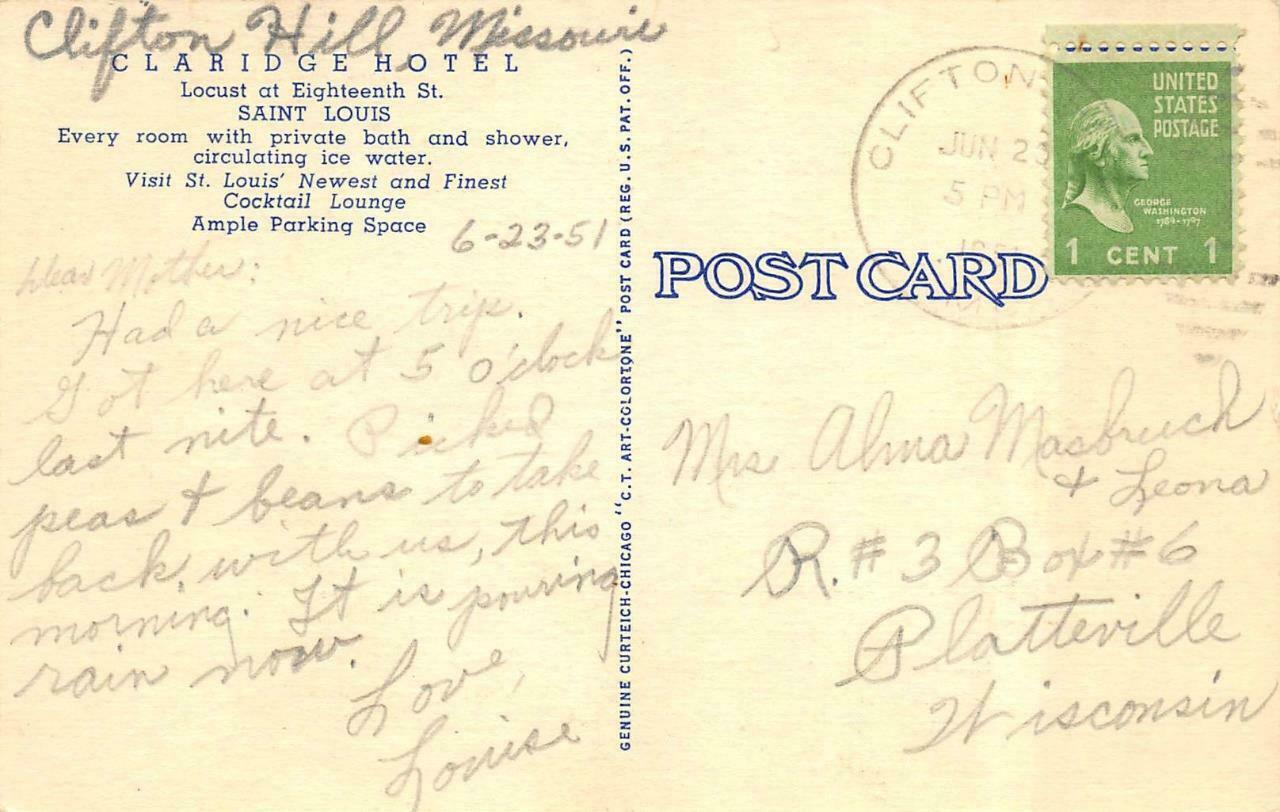 Clifton Hill Missouri
CLARIDGE HOTEL
Locust at Eighteenth St.
SAINT LOUIS
Every room with private bath and shower,
circulating ice water.
Visit St. Louis' Newest and Finest
Cocktail Lounge
Ample Parking Space
6-23-51
Dear Mother:
Had a nice trip.
Got here at 5 o'clock
last nite. Picked
peas & beans to take
back with us, this
morning. It is pouring
rain now.
Love,
Louise
GENUINE CURTEICH-CHICAGO "C.T. ART-COLORTONE" POST CARD (REG. U.S. PAT. OFF.)
CLIFTON
JUN 23
5 PM
1951
UNITED
STATES
POSTAGE
GEORGE
WASHINGTON
1789-1797
1 CENT 1
POST CARD
Mrs Alma Masbruch
& Leona
R. # 3 Box # 6
Platteville
Wisconsin